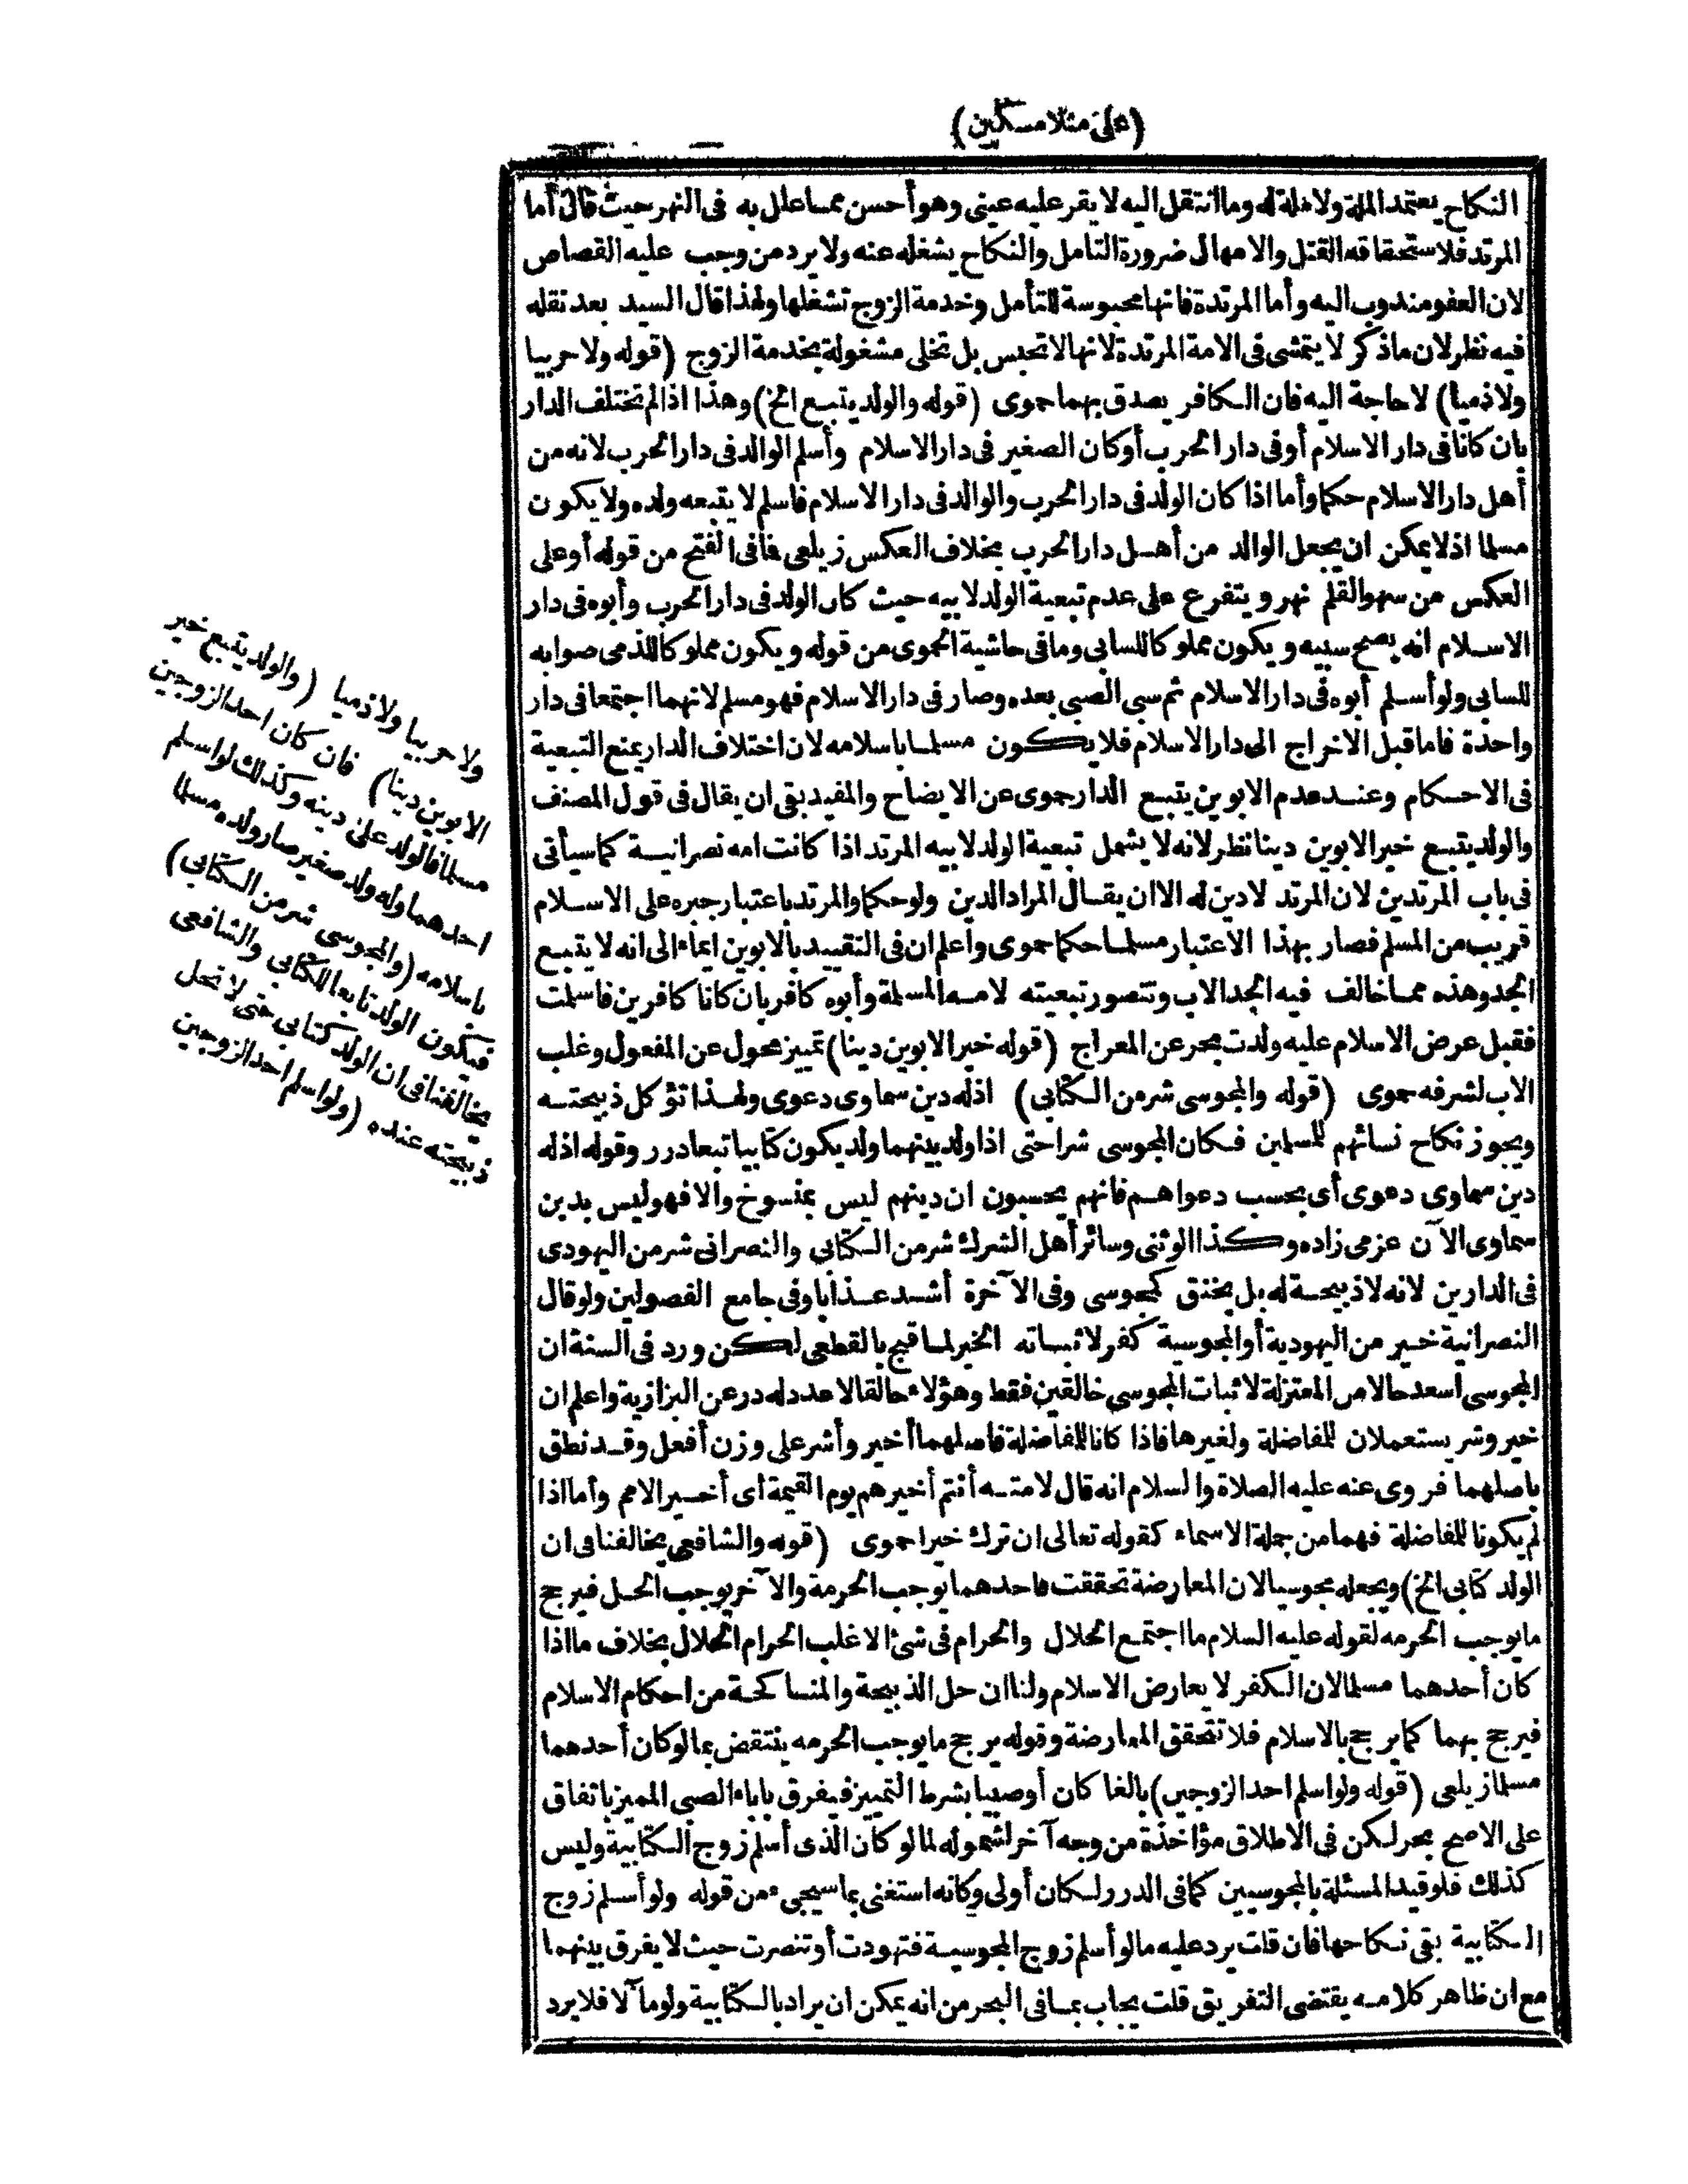 (على منلا مسكين)
النكاح يعتمد الملة ولا ملة له وما انتقل اليه لا يقر عليه عينى وهو أحسن مما علل به فى النهر حيث قال أما
المرتد فلاستحقاقه القتل والامهال ضرورة التامل والنكاح يشغله عنه ولا يرد من وجب عليه القصاص
لان العفو مندوب اليه وأما المرتدة فانها محبوسة للتأمل وخدمة الزوج تشغلها ولهذا قال السيد بعد نقله
فيه نظر لان ماذكر لا يتمشى فى الامة المرتدة لانها لا تحبس بل تخلى مشغولة بخدمة الزوج (قوله ولا حربيا
ولا ذميا) لا حاجة اليه فان الكافر يصدق بهما حموى (قوله والولد يتبع الخ) وهذا اذا لم تختلف الدار
بان كانا فى دار الاسلام أو فى دار الحرب أو كان الصغير فى دار الاسلام وأسلم الوالد فى دار الحرب لانه من
أهل دار الاسلام حكما وأما اذا كان الولد فى دار الحرب والوالد فى دار الاسلام فاسلم لا يتبعه ولده ولا يكون
مسلما اذ لا يمكن ان يجعل الوالد من أهل دار الحرب بخلاف العكس زيلعى فما فى الفتح من قوله أو على
العكس من سهو القلم نهر ويتفرع على عدم تبعية الولد لابيه حيث كان الولد فى دار الحرب وأبوه فى دار
الاسلام انه يصح سبيه ويكون مملوكا للسابى وما فى حاشية الحموى من قوله ويكون مملوكا للذمى صوابه
للسابى ولو أسلم أبوه فى دار الاسلام ثم سبى الصبى بعده وصار فى دار الاسلام فهو مسلم لانهما اجتمعا فى دار
واحدة فاما قبل الاخراج الى دار الاسلام فلا يكون مسلما باسلامه لان اختلاف الدار يمنع التبعية
فى الاحكام وعند عدم الابوين يتبع الدار حموى عن الايضاح والمفيد بقى ان يقال فى قول المصنف
والولد يتبع خير الابوين دينا نظر لانه لا يشمل تبعية الولد لابيه المرتد اذا كانت امه نصرانية كما سيأتى
فى باب المرتدين لان المرتد لا دين له الا ان يقال المراد الدين ولو حكما والمرتد باعتبار جبره على الاسلام
قريب من المسلم فصار بهذا الاعتبار مسلما حكما حموى واعلم ان فى التقييد بالابوين ايماء الى انه لا يتبع
الجد وهذه مما خالف فيه الجد الاب وتتصور تبعيته لامه المسلمة وأبوه كافر بان كانا كافرين فاسلمت
فقبل عرض الاسلام عليه ولدت بحر عن المعراج (قوله خير الابوين دينا) تمييز محول عن المفعول وغلب
الاب لشرفه حموى (قوله والمجوسى شر من الكتابى) اذ له دين سماوى دعوى ولهذا تؤكل ذبيحته
ويجوز نكاح نسائهم للمسلمين فكان المجوسى شرا حتى اذا ولد بينهما ولد يكون كتابيا تبعا درر وقوله اذ له
دين سماوى دعوى أى بحسب دعواهم فانهم يحسبون ان دينهم ليس بمنسوخ والا فهو ليس بدين
سماوى الآن عزمى زاده وكذا الوثنى وسائر أهل الشرك شر من الكتابى والنصرانى شر من اليهودى
فى الدارين لانه لا ذبيحة له بل يخنق كمجوسى وفى الآخرة أشد عذابا وفى جامع الفصولين ولو قال
النصرانية خير من اليهودية أو المجوسية كفر لاثباته الخير لما قبح بالقطعى لكن ورد فى السنة ان
المجوسى اسعد حالا من المعتزلة لاثبات المجوسى خالقين فقط وهؤلاء خالقا لا عدد له در عن البزازية واعلم ان
خير وشر يستعملان للمفاضلة ولغيرها فاذا كانا للمفاضلة فاصلهما أخير وأشر على وزن أفعل وقد نطق
باصلهما فروى عنه عليه الصلاة والسلام انه قال لامته أنتم أخيرهم يوم القيمة أى أخير الامم وأما اذا
لم يكونا للمفاضلة فهما من جملة الاسماء كقوله تعالى ان ترك خيرا حموى (قوله والشافعى يخالفنا فى ان
الولد كتابى الخ) ويجعله مجوسيا لان المعارضة تحققت فاحدهما يوجب الحرمة والآخر يوجب الحل فيرجح
ما يوجب الحرمه لقوله عليه السلام ما اجتمع الحلال والحرام فى شئ الا غلب الحرام الحلال بخلاف ما اذا
كان أحدهما مسلما لان الكفر لا يعارض الاسلام ولنا ان حل الذبيحة والمناكحة من احكام الاسلام
فيرجح بهما كما يرجح بالاسلام فلا تتحقق المعارضة وقوله يرجح ما يوجب الحرمه ينتقض بما لو كان أحدهما
مسلما زيلعى (قوله ولو اسلم احد الزوجين) بالغا كان أو صبيا بشرط التمييز فيفرق باباء الصبى المميز باتفاق
على الاصح بحر لكن فى الاطلاق مؤاخذة من وجه آخر لشموله لما لو كان الذى أسلم زوج الكتابية وليس
كذلك فلو قيد المسئلة بالمجوسيين كما فى الدرر لكان أولى وكانه استغنى بما سيجىء من قوله ولو أسلم زوج
الكتابية بقى نكاحها فان قلت يرد عليه ما لو أسلم زوج المجوسية فتهودت أو تنصرت حيث لا يفرق بينهما
مع ان ظاهر كلامه يقتضى التفريق قلت يجاب بما فى البحر من انه يمكن ان يراد بالكتابية ولو مآلا فلا يرد
ولا حربيا ولا ذميا (والولد يتبع خير
الابوين دينا) فان كان احد الزوجين
مسلما فالولد على دينه وكذلك لو اسلم
احدهما وله ولد صغير صار ولده مسلما
باسلامه (والمجوسى شر من الكتابى)
فيكون الولد تابعا للكتابى والشافعى
يخالفنا فى ان الولد كتابى حتى لا تحل
ذبيحته عنده (ولو اسلم احد الزوجين